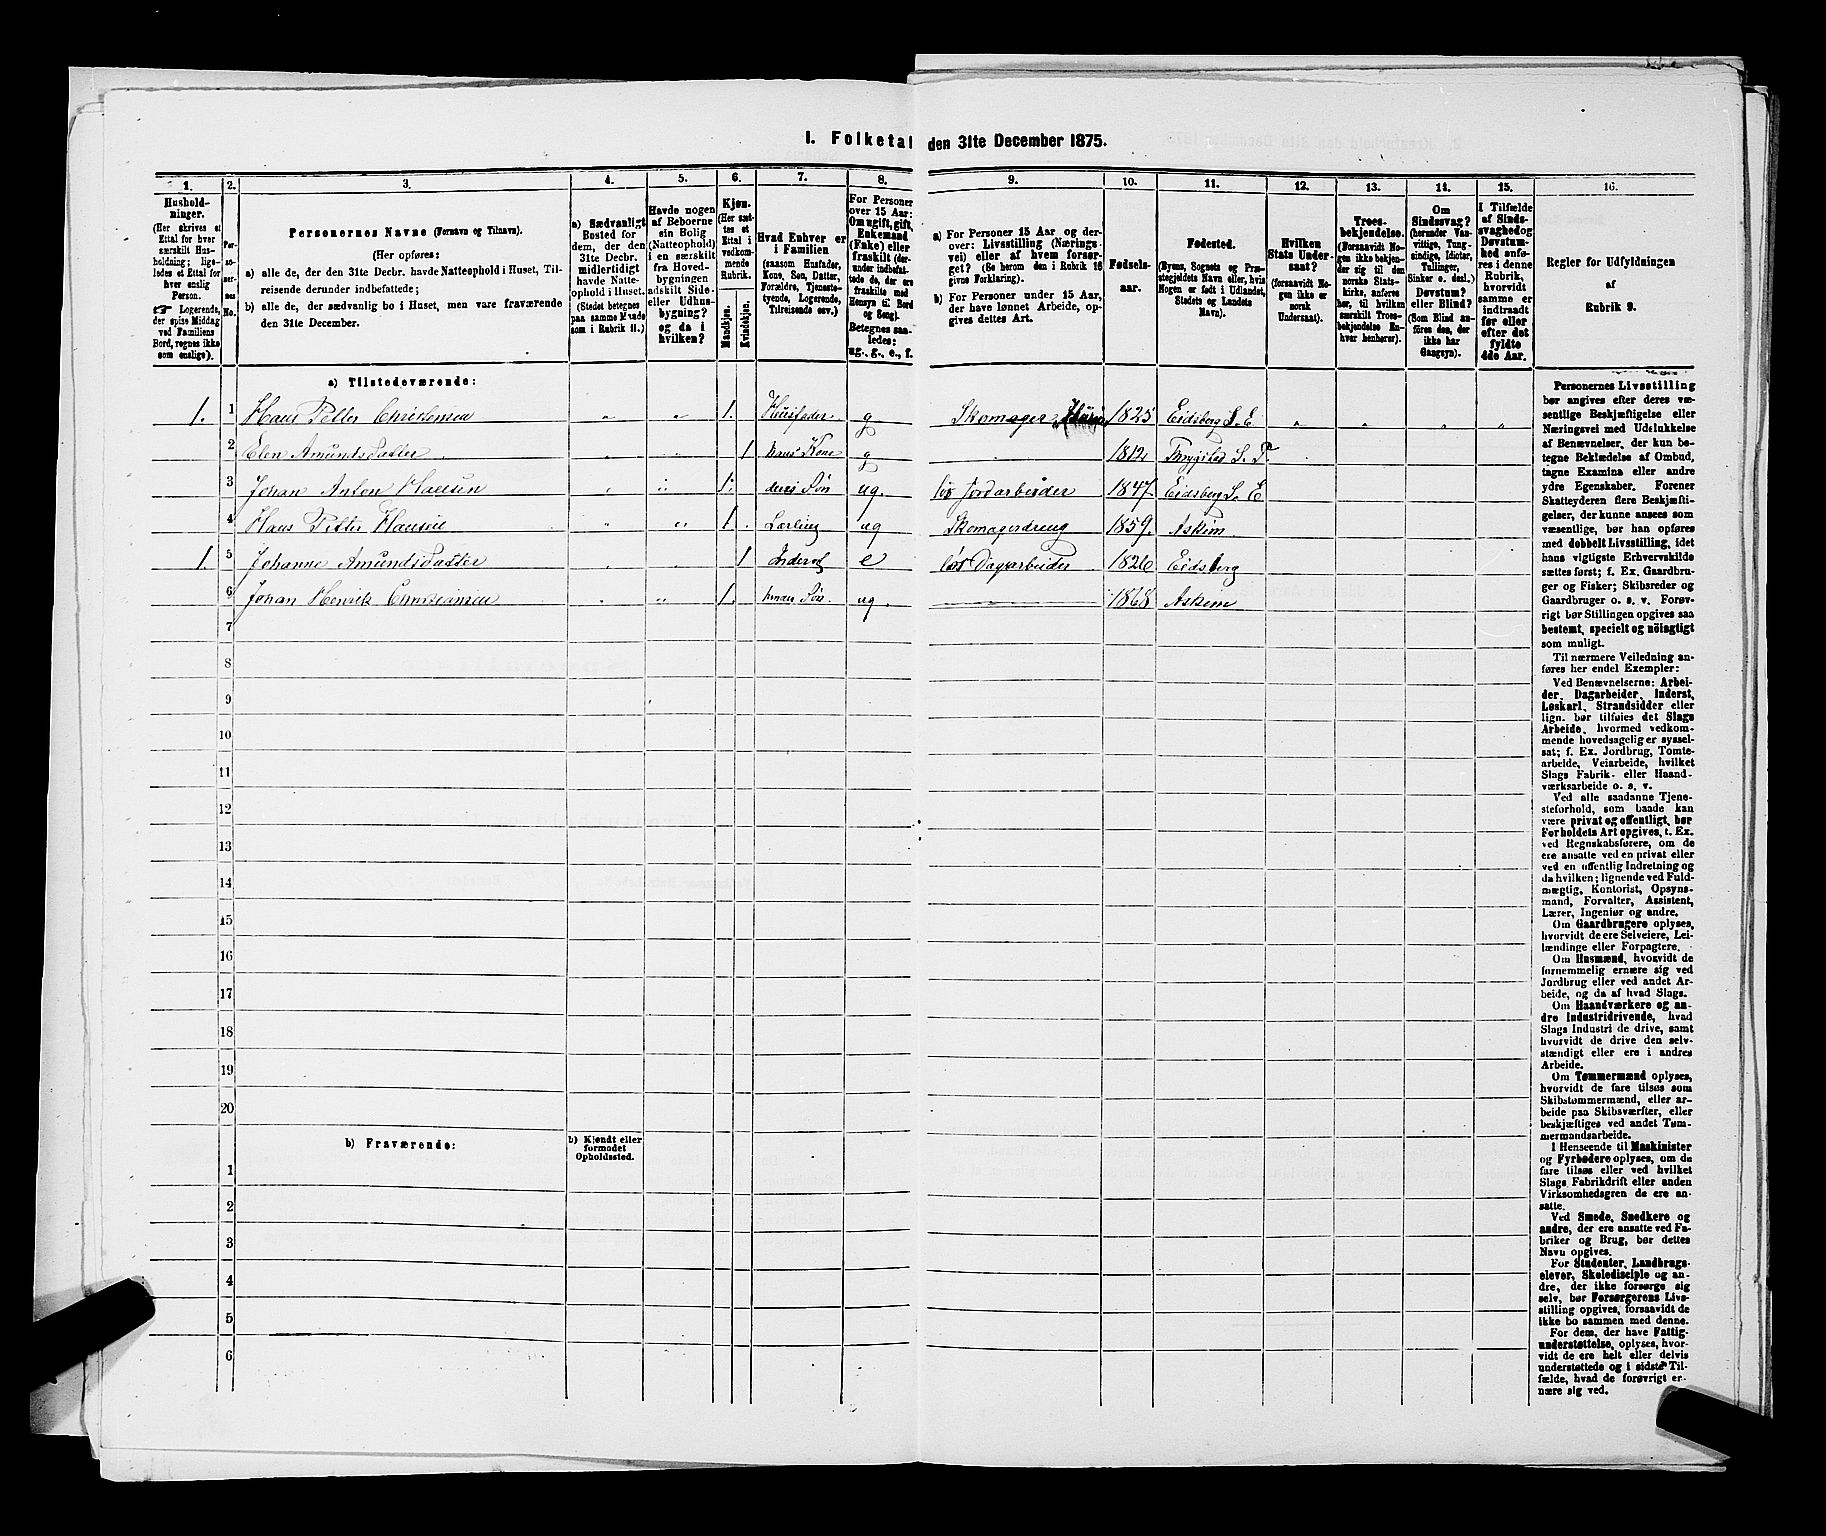 I. Folketal den 31te December 1875.
1. 2. 3. 4. 5. 6. 7. 8. 9. 10. 11. 12. 13. 14. 15. 16.
Husholdninger.
(Her skrives et
Ettal for hver
særskilt Hus-
holdning; lige-
ledes et Ettal for
hver enslig
Person.
☞ Logerende,
der spise Middag
ved Familiens
Bord, regnes ikke
som enslige).
Personernes No.
Personernes Navne (Fornavn og Tilnavn).
(Her opføres:
a) alle de, der den 31te Decbr. havde Natteophold i Huset, Til-
reisende derunder indbefattede;
b) alle de, der sædvanlig bo i Huset, men vare fraværende
den 31te December.
a) Sædvanligt
Bosted for
dem, der den
31te Decbr.
midlertidigt
havde Natte-
ophold i Huset.
(Stedet betegnes
paa samme Maade
som i Rubrik 11.)
Havde nogen
af Beboerne
sin Bolig
(Natteophold)
i en særskilt
fra Hoved-
bygningen
adskilt Side-
eller Udhus-
bygning?
og da i
hvilken?
Kjøn.
(Her sæt-
tes et
Ettal i
vedkom-
mende
Rubrik.
Mandkjøn.
Kvindekjøn.
Hvad Enhver er
i Familien
(saasom Husfader,
Kone, Søn, Datter,
Forældre, Tjeneste-
tyende, Logerende,
Tilreisende osv.)
For Personer
over 15 Aar:
Om ugift, gift,
Enkemand
(Enke) eller
fraskilt (der-
under indbefat-
tede de, der ere
fraskilte med
Hensyn til Bord
og Seng).
Betegnes saa-
ledes:
ug., g., e., f.
a) For Personer 15 Aar og der-
over: Livsstilling (Nærings-
vei) eller af hvem forsør-
get? (Se herom den i Rubrik 16
givne Forklaring).
b) For Personer under 15 Aar,
der have lønnet Arbeide, op-
gives dettes Art.
Fødsels-
aar.
Fødested.
(Byens, Sognets og Præ-
stegjeldets Navn eller, hvis
Nogen er født i Udlandet,
Stedets og Landets
Navn).
Hvilken
Stats Under-
saat?
(forsaavidt No-
gen ikke er
norsk
Undersaat).
Troes-
bekjendelse.
(Forsaavidt No-
gen ikke bekjen-
der sig til den
norske Stats-
kirke, anføres
her, til hvilken
særskilt Troes-
bekjendelse En-
hver henhører).
Om
Sindssvag?
(herunder Van-
vittige, Tung-
sindige, Idioter,
Tullinger,
Sinker o. desl.).
Døvstum?
eller Blind?
(Som Blind an-
føres den, der
ikke har
Gangsyn).
I Tilfælde
af Sinds-
svaghed og
Døvstum-
hed anfø-
res i denne
Rubrik,
hvorvidt
samme er
indtraadt
før eller
efter det
fyldte
4de Aar.
Regler for Udfyldningen
af
Rubrik 9.
a) Tilstedeværende:
1. 1 Hans Petter Christensen „ „ 1. Husfader g Skomager 1825 Eidsberg S. E „ „ „ „
2 Elen Amundsdatter 1 hans Kone g 1812 Trygstad S. P.
3 Johan Anton Hansen 1. deres Søn ug. Jordarbeider 1847. Eidsberg S. E
4 Hans Petter Hansen „ „ 1. Lærling ug Skomagerdreng 1859. Askim
1. 5 Johanne Amundsdatter 1 Inderst e Dagarbeider 1826 Eidsberg
6 Johan Henrik Christiansen „ „ 1. hendes Søn ug. 1868 Askim
7
8
9
10
11
12
13
14
15
16
17
18
19
20
b) Fraværende:
b) Kjendt eller
formodet
Opholdssted.
1
2
3
4
5
6
Personernes Livsstilling
bør angives efter deres væ-
sentlige Beskjæftigelse eller
Næringsvei med Udelukkelse
af Benævnelser, der kun be-
tegne Beklædelse af Ombud,
tagne Examina eller andre
ydre Egenskaber. Forener
Skatteyderen flere Beskjæfti-
gelser, der kunne ansees som
væsentlige, bør han opføres
med dobbelt Livsstilling, idet
hans vigtigste Erhvervskilde
sættes først; f. Ex. Gaardbru-
ger og Fisker; Skibsreder og
Gaardbruger o. s. v. Forøv-
rigt bør Stillingen opgives saa
bestemt, specielt og nöiagtigt
som muligt.
Til nærmere Veiledning an-
føres her endel Exempler:
Ved Benævnelserne: Arbei-
der, Dagarbeider, Inderst,
Løskarl, Strandsidder eller
lign. bør tilføies det Slags
Arbeide, hvormed vedkom-
mende hovedsagelig er syssel-
sat; f. Ex. Jordbrug, Tomte-
arbeide, Veiarbeide, hvilket
Slags Fabrik- eller Haand-
værksarbeide o. s. v.
Ved alle saadanne Tjene-
steforhold, som baade kan
være privat og offentligt, bør
Forholdets Art opgives, t. Ex.
ved Regnskabsførere, om de
ere ansatte ved en privat eller
ved en offentlig Indretning og
da hvilken; lignende ved Fuld-
mægtig, Kontorist, Opsyns-
mand, Forvalter, Assistent,
Lærer, Ingeniør og andre.
Om Gaardbrugere oplyses,
hvorvidt de ere Selveiere, Lei-
lændinge eller Forpagtere.
Om Husmænd, hvorvidt de
fornemmelig ernære sig ved
Jordbrug eller ved andet Ar-
beide, og da af hvad Slags.
Om Haandværkere og an-
dre Industridrivende, hvad
Slags Industri de drive, samt
hvorvidt de drive den selv-
stændigt eller ere i andres
Arbeide.
Om Tømmermænd oplyses,
hvorvidt de fare tilsøs som
Skibstømmermænd, eller ar-
beide paa Skibsværfter, eller
beskjæftiges ved andet Tøm-
mermandsarbeide.
I Henseende til Maskinister
og Fyrbødere oplyses, om de
fare tilsøs eller ved hvilket
Slags Fabrikdrift eller anden
Virksomhedsgren de ere an-
satte.
Ved Smede, Snedkere og
andre, der ere ansatte ved Fa-
briker og Brug, bør dettes
Navn opgives.
For Studenter, Landbrugs-
elever, Skoledisciple og an-
dre, der ikke forsørge sig
selv, bør Forsørgerens Livs-
stilling opgives, forsaavidt de
ikke bo sammen med denne.
For dem, der have Fattig-
understøttelse, oplyses, hvor-
vidt de ere helt eller delvis
understøttede og i sidste Til-
fælde, hvad de forøvrigt er-
nære sig ved.